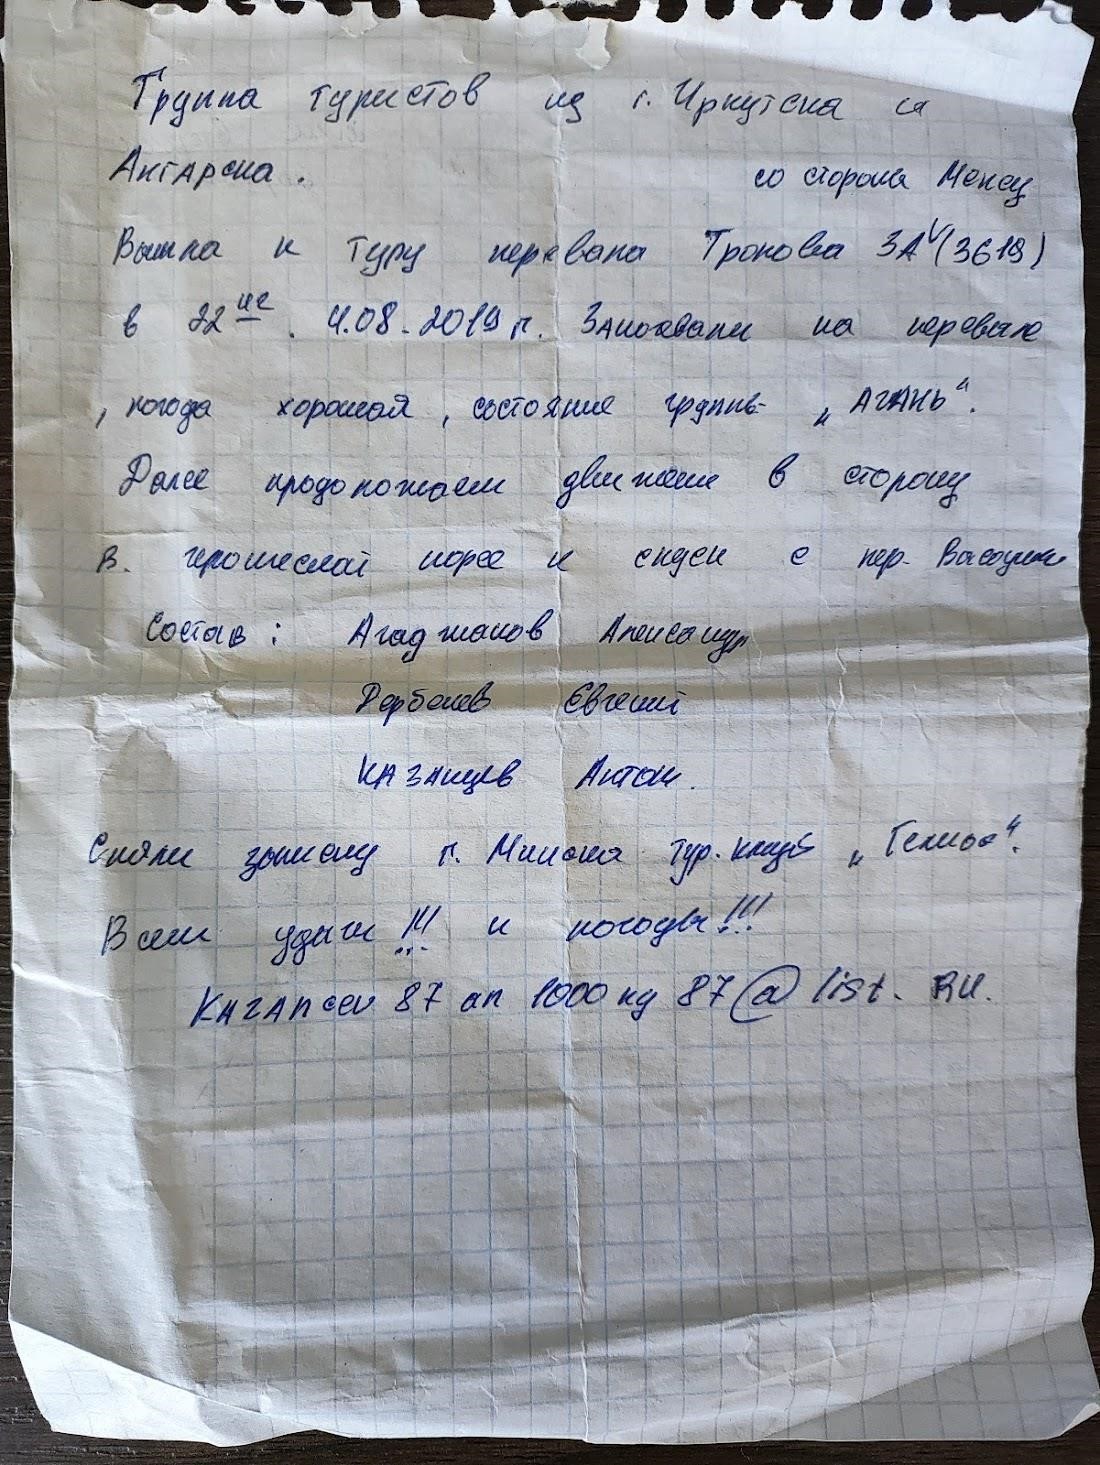 Группа туристов из г. Иркутска и
Ангарска. со стороны Менсу
Вышла к туру перевала Тронова 3А (3619)
в 22 че. 4.08.2019 г. Заночевали на перевале
, погода хорошая, состояние группы „АГАНЬ“.
Далее продолжаем движение в сторону
В. и спуск с пер.
Состав: Агаджанов Александр
Евгений
КАЗАНЦЕВ Антон.
Сняли записку г. Минска тур. клуб
Всем удачи!!! и погоды!!!
87@list.RU.